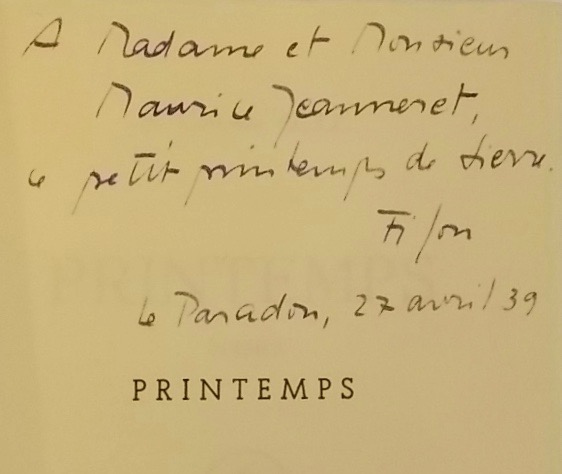 A Madame et Monsieur
Maurice Jeanneret,
ce petit printemps de Sierre.
Filon
Le Paradou, 27 avril 39
PRINTEMPS